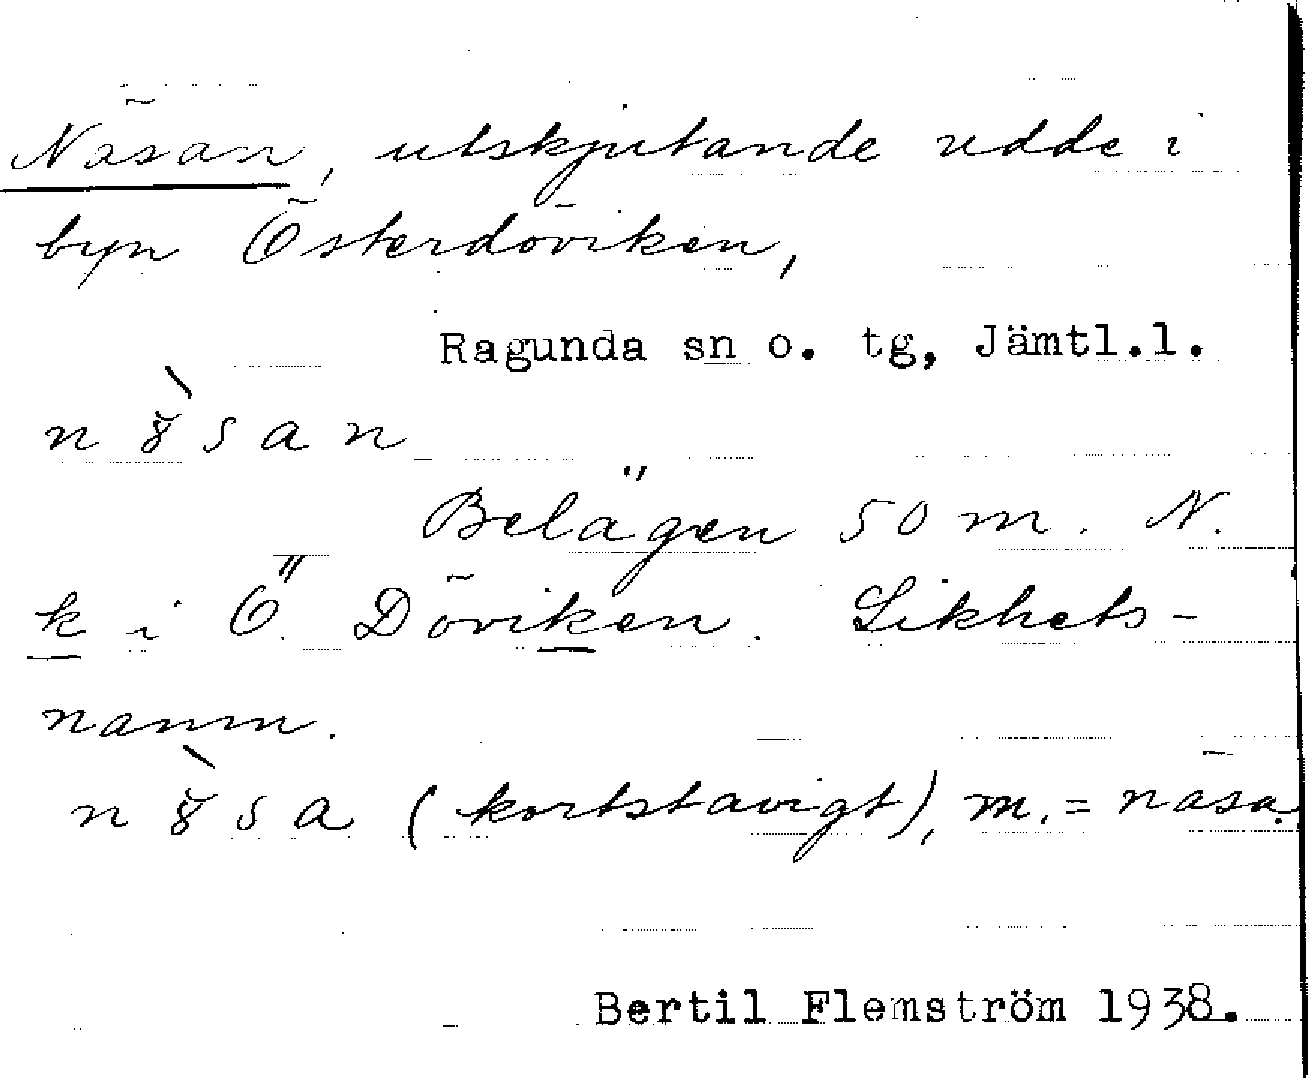 Näsan, utskjutande udde i
byn Österdöviken,
Ragunda sn o. tg, Jämtl.l.
n ɤ̀ s a n
Belägen 50 m. N.
k i Ö. Döviken. Likhets-
namn.
n ɤ̀ s a (kortstavigt), m. = näsa.
Bertil Flemström 1938.